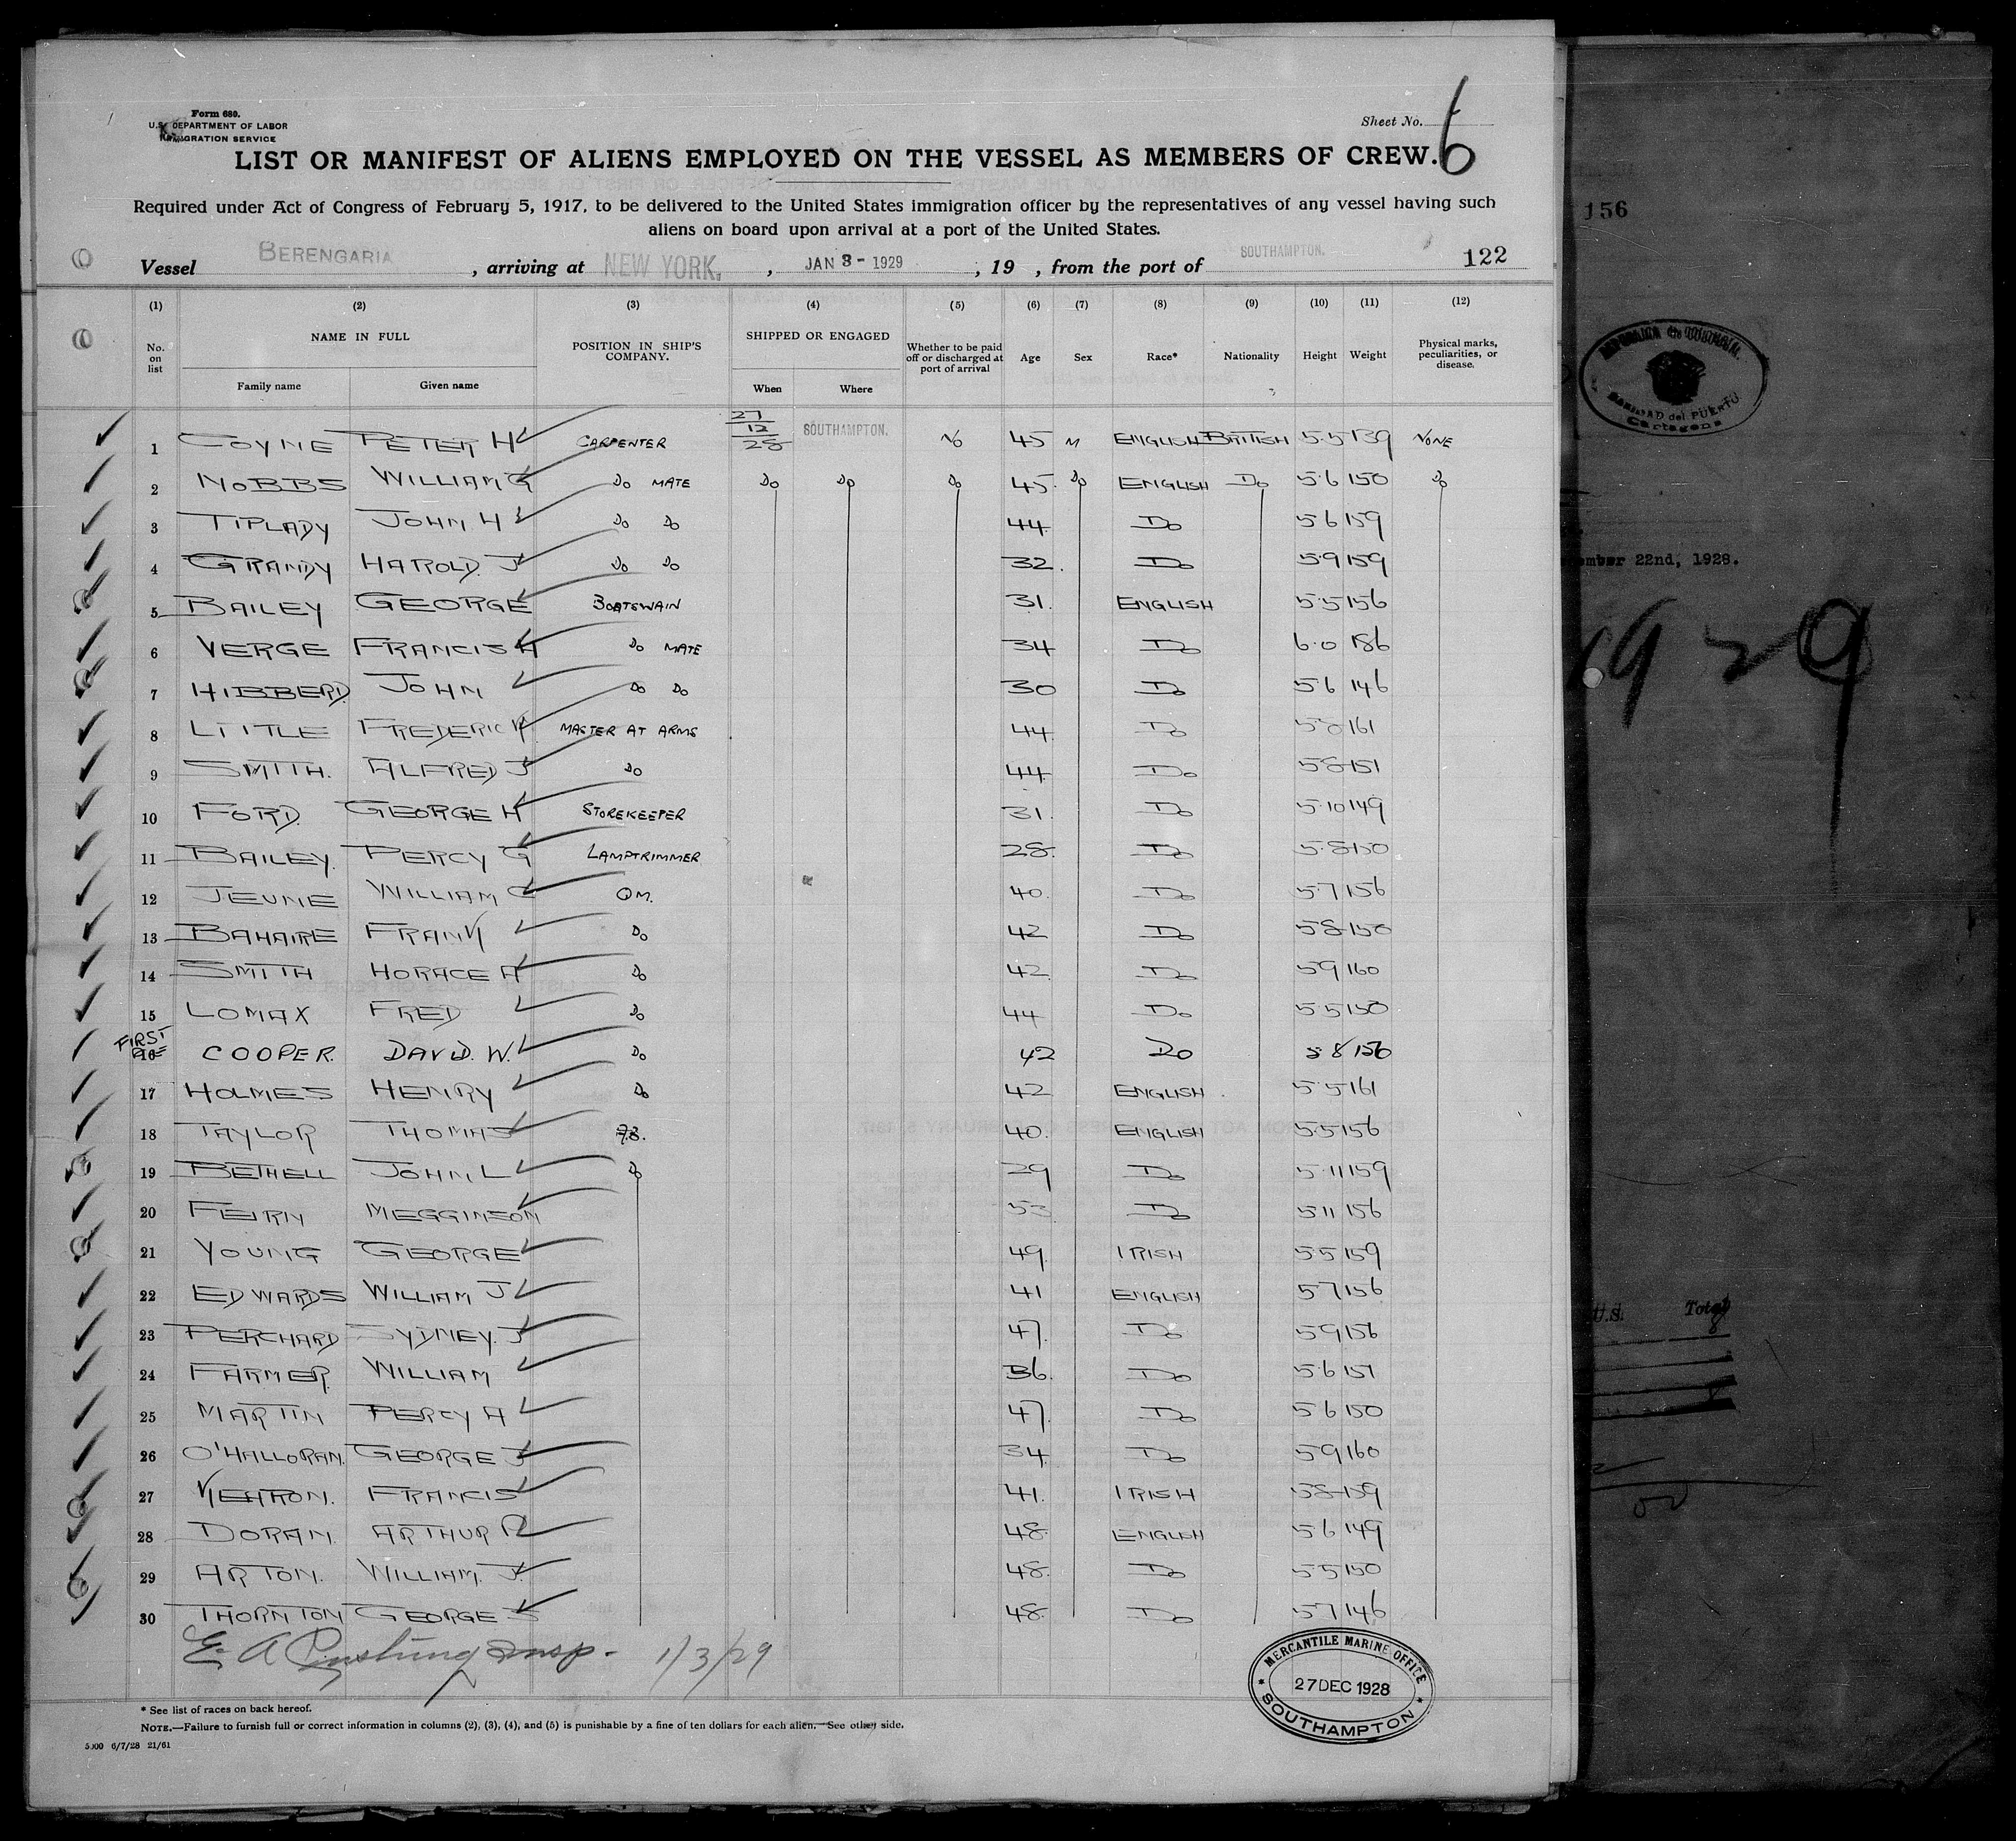 Form 680.
U.S. DEPARTMENT OF LABOR
IMMIGRATION SERVICE
Sheet No. 6
LIST OR MANIFEST OF ALIENS EMPLOYED ON THE VESSEL AS MEMBERS OF CREW.
Required under Act of Congress of February 5, 1917, to be delivered to the United States immigration officer by the representatives of any vessel having such
aliens on board upon arrival at a port of the United States.
Vessel BERENGARIA, arriving at NEW YORK, JAN 3 - 1929, 19 , from the port of SOUTHAMPTON. 122
(1) (2) (3) (4) (5) (6) (7) (8) (9) (10) (11) (12)
No. on list NAME IN FULL POSITION IN SHIP'S COMPANY. SHIPPED OR ENGAGED Whether to be paid off or discharged at port of arrival Age Sex Race* Nationality Height Weight Physical marks, peculiarities, or disease.
Family name Given name When Where
1 COYNE PETER H CARPENTER 27/12/28 SOUTHAMPTON. NO 45 M ENGLISH BRITISH 5.5 139 NONE
2 NOBBS WILLIAM G DO MATE DO DO DO 45. DO ENGLISH DO 5.6 150 DO
3 TIPLADY JOHN H DO DO 44. DO 5.6 159
4 GRANDY HAROLD. J DO DO 32. DO 5.9 159
5 BAILEY GEORGE BOATSWAIN 31. ENGLISH 5.5 156
6 VERGE FRANCIS H DO MATE 34 DO 6.0 186
7 HIBBERD. JOHN DO DO 30 DO 5.6 146
8 LITTLE FREDERICK MASTER AT ARMS 44. DO 5.8 161
9 SMITH. ALFRED J DO 44. DO 5.8 151
10 FORD. GEORGE H STOREKEEPER 31. DO 5.10 149
11 BAILEY. PERCY G LAMPTRIMMER 28. DO 5.8 150
12 JEUNE WILLIAM C QM. 40. DO 5.7 156
13 BAHAIRE FRANK DO 42 DO 5.8 150
14 SMITH HORACE A DO 42. DO 5.9 160
15 LOMAX FRED DO 44 DO 5.5 150
FIRST
16 COOPER. DAVID. W. DO 42 DO 5 8 156
17 HOLMES HENRY DO 42 ENGLISH 5.5 161
18 TAYLOR THOMAS A.B. 40. ENGLISH 5.5 156
19 BETHELL JOHN L DO 29 DO 5.11 159
20 FEIRN MEGGINSON 53 DO 5.11 156
21 YOUNG GEORGE 49. IRISH 5.5 159
22 EDWARDS WILLIAM J 41 ENGLISH 5.7 156
23 PERCHARD SYDNEY. J 47. DO 5.9 156
24 FARMER. WILLIAM 36. DO 5.6 151
25 MARTIN PERCY A 47. DO 5.6 150
26 O'HALLORAN. GEORGE J 34. DO 5.9 160
27 FRANCIS 41. IRISH 5.8 159
28 DORAN. ARTHUR R 48. ENGLISH 5.6 149
29 ARTON. WILLIAM. J. 48. DO 5.5 150
30 THORNTON GEORGE S 48. DO 5.7 146
E. A. Insp. - 1/3/29
MERCANTILE MARINE OFFICE
27 DEC 1928
SOUTHAMPTON
* See list of races on back hereof.
NOTE.—Failure to furnish full or correct information in columns (2), (3), (4), and (5) is punishable by a fine of ten dollars for each alien.—See other side.
5000 6/7/28 21/61
156
del PUERTO
Cartagena
ember 22nd, 1928.
1929
U.S. Total
8